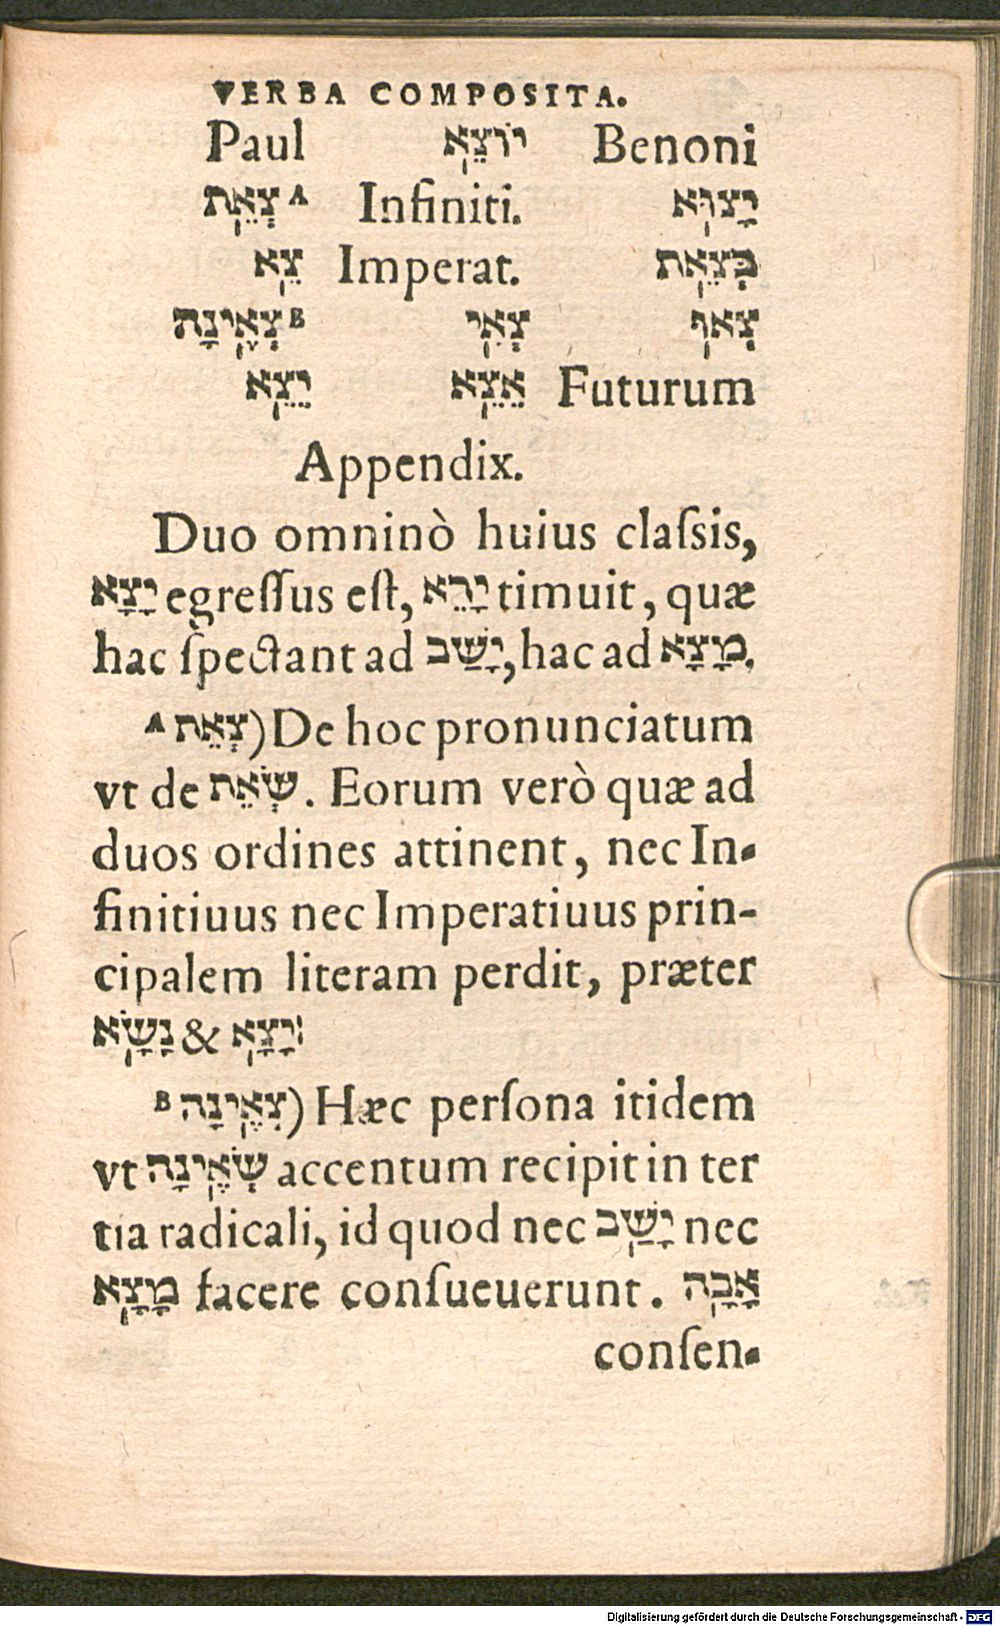 VERBA COMPOSITA.
Paul יוֹצֵא Benoni
צֵאת A Infiniti. יָצוּא
צֵא Imperat. בְּצֵאת
צְאֶינָה B צְאִי צְאוּ
יֵצֵא אֵצֵא Futurum
Appendix.
Duo omninò huius claſsis,
יָצָא egreſſus eſt, יָרֵא timuit, quæ
hac ſpectant ad יָשַׁב, hac ad מָצָא.
A צֵאת) De hoc pronunciatum
vt de שְׂאֵת. Eorum verò quæ ad
duos ordines attinent, nec In-
finitiuus nec Imperatiuus prin-
cipalem literam perdit, præter
נָשָׂא & יָצָא:
B צְאֶינָה) Hæc perſona itidem
vt שְׂאֶינָה accentum recipit in ter
tia radicali, id quod nec יָשַׁב nec
מָצָא facere conſueuerunt. אָבָה
conſen-
Digitalisierung gefördert durch die Deutsche Forschungsgemeinschaft - DFG